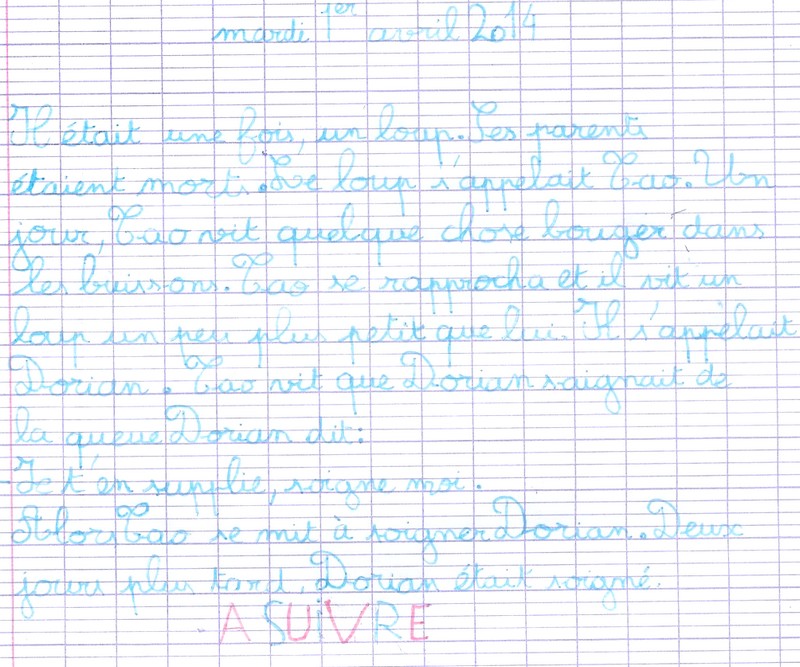 mardi 1er avril 2014
Il était une fois, un loup. Ses parents
étaient morts. Le loup s'appelait Tao. Un
jour, Tao vit quelque chose bouger dans
les buissons. Tao se rapprocha et il vit un
loup un peu plus petit que lui. Il s'appelait
Dorian. Tao vit que Dorian saignait de
la queue Dorian dit:
-Je t'en supplie, soigne moi.
Alors Tao se mit à soigner Dorian. Deux
jours plus tard, Dorian était soigné.
A SUiVRE